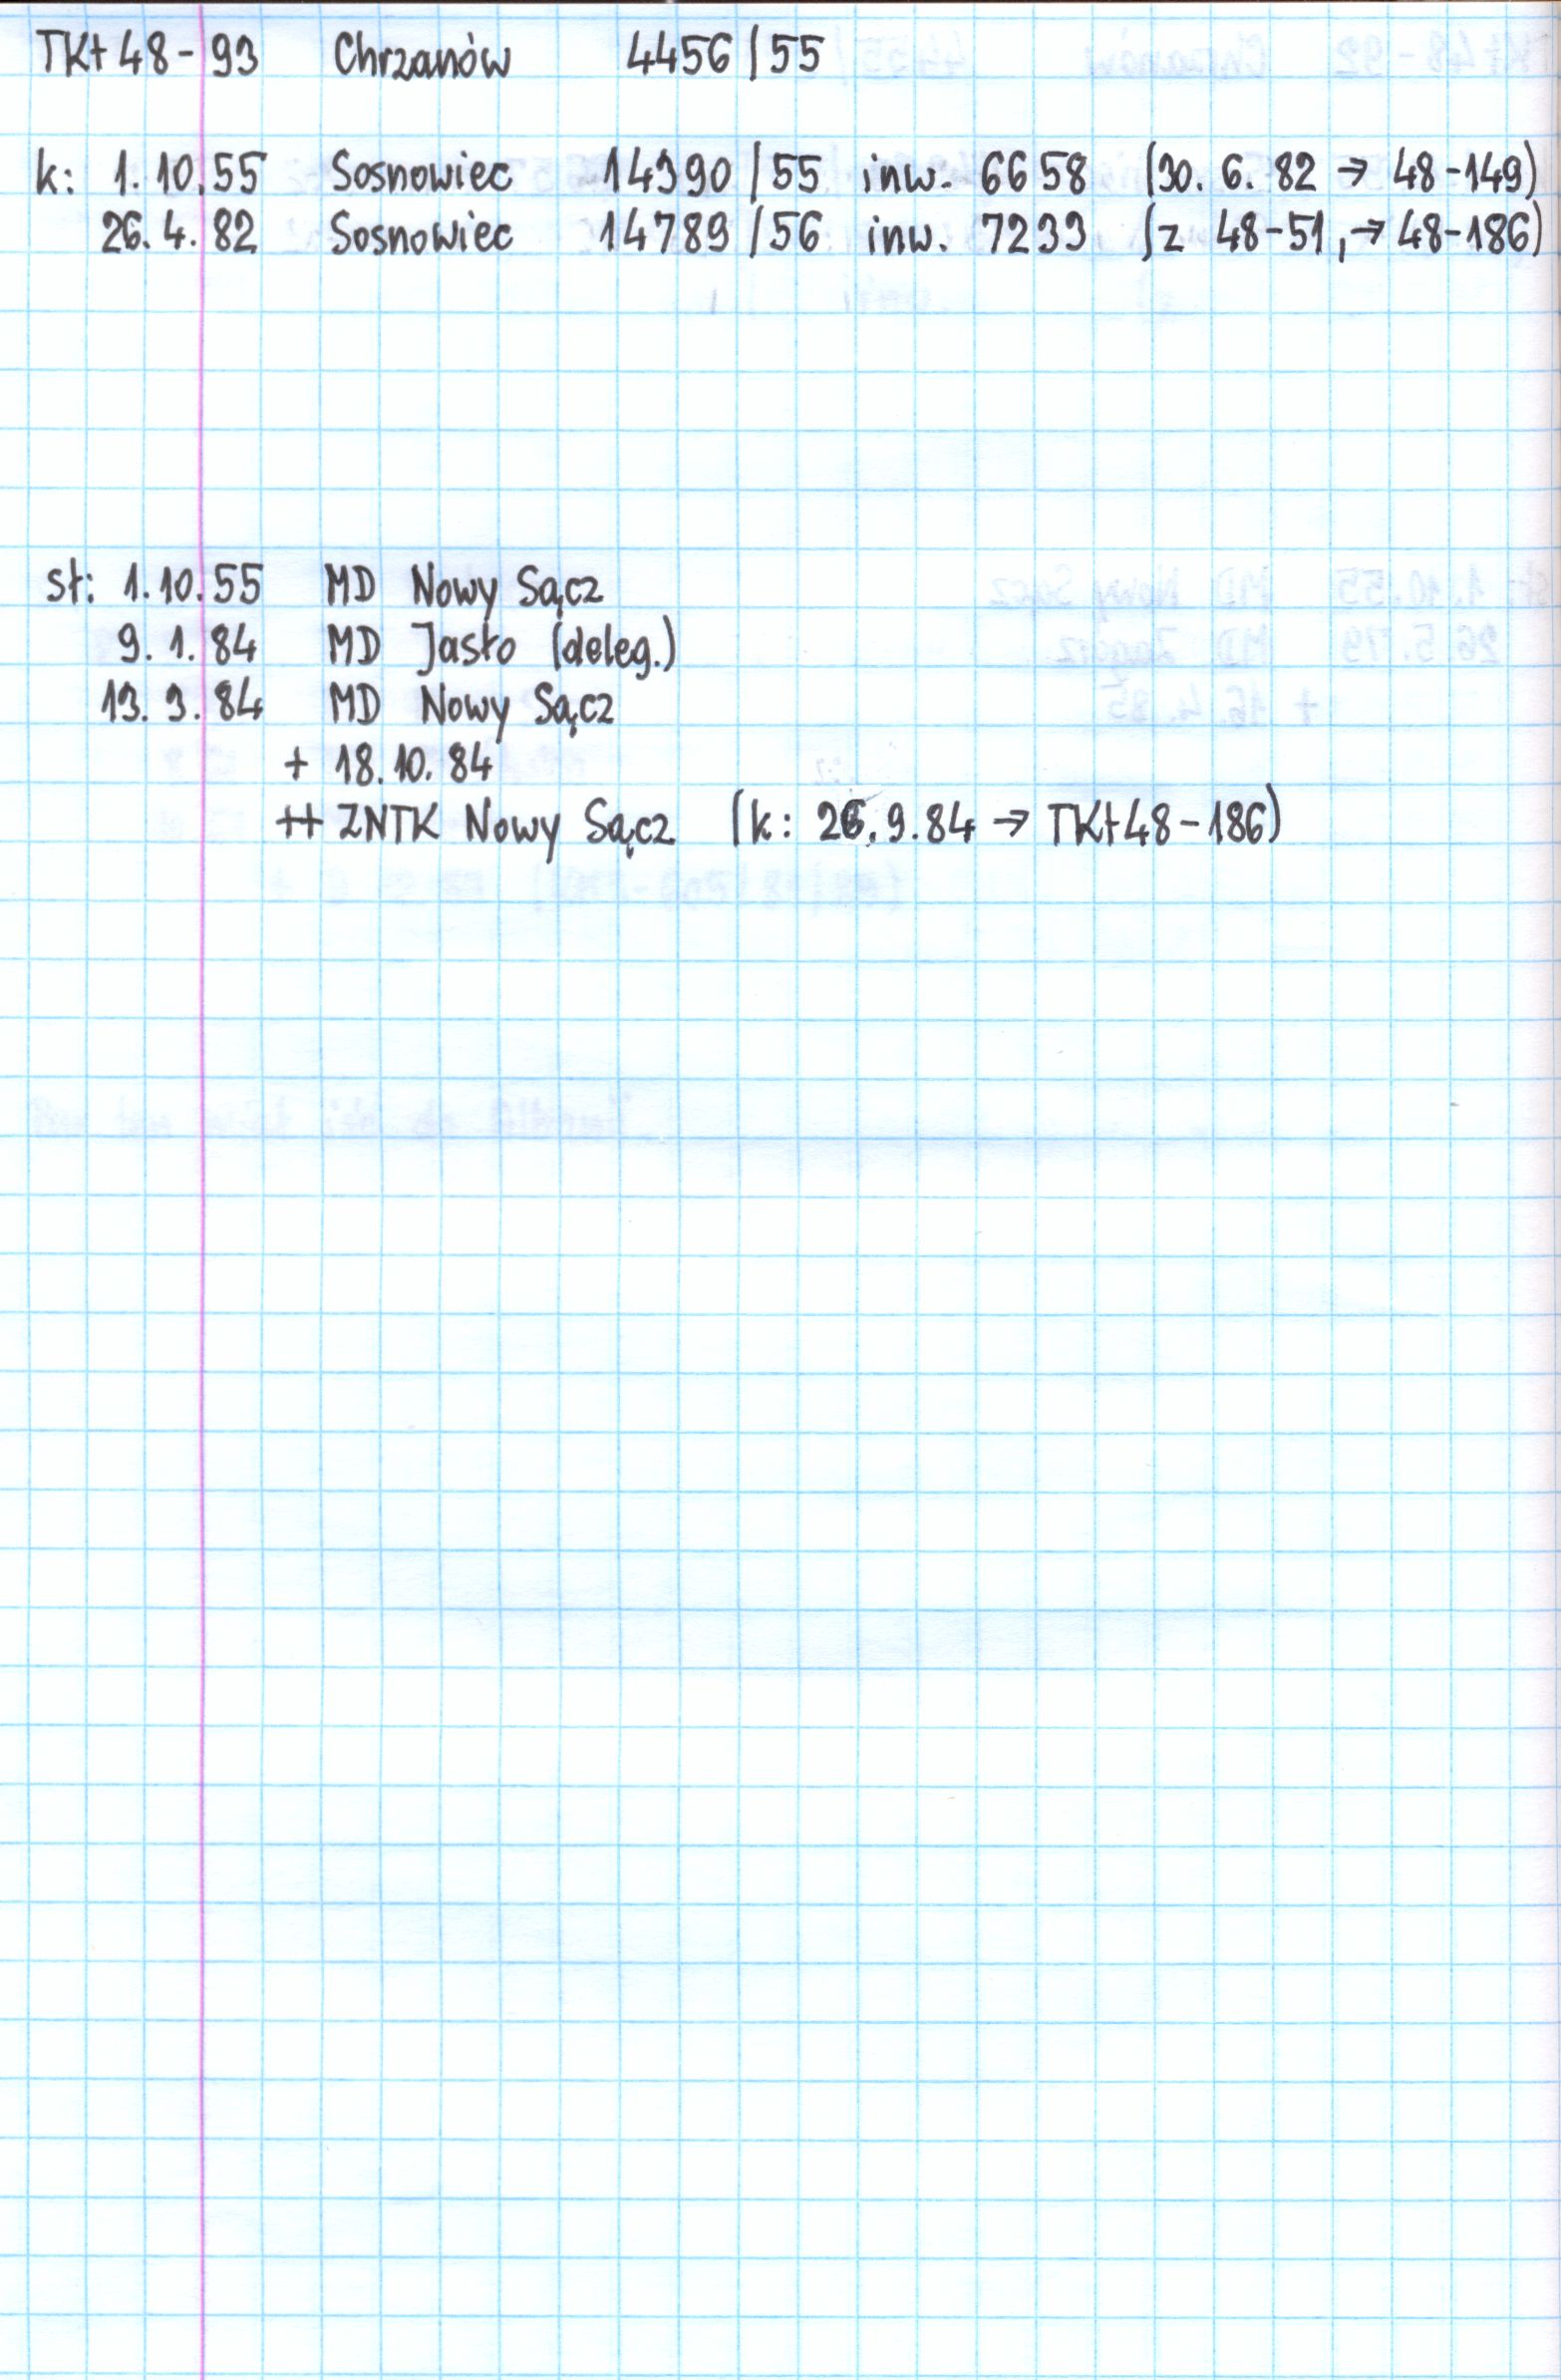 TKt 48-93 Chrzanów 4456/55
k: 1.10.55 Sosnowiec 14390/55 inw. 6658 (30.6.82 → 48-149)
26.4.82 Sosnowiec 14789/56 inw. 7233 (z 48-51, → 48-186)
sł: 1.10.55 MD Nowy Sącz
9.1.84 MD Jasło (deleg.)
13.3.84 MD Nowy Sącz
+ 18.10.84
++ ZNTK Nowy Sącz (k: 26.9.84 → TKt48-186)